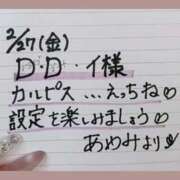 2/27(金)
D・D・イ様
カルピス…えっちね♡
設定を楽しみましょう♡
あめみより